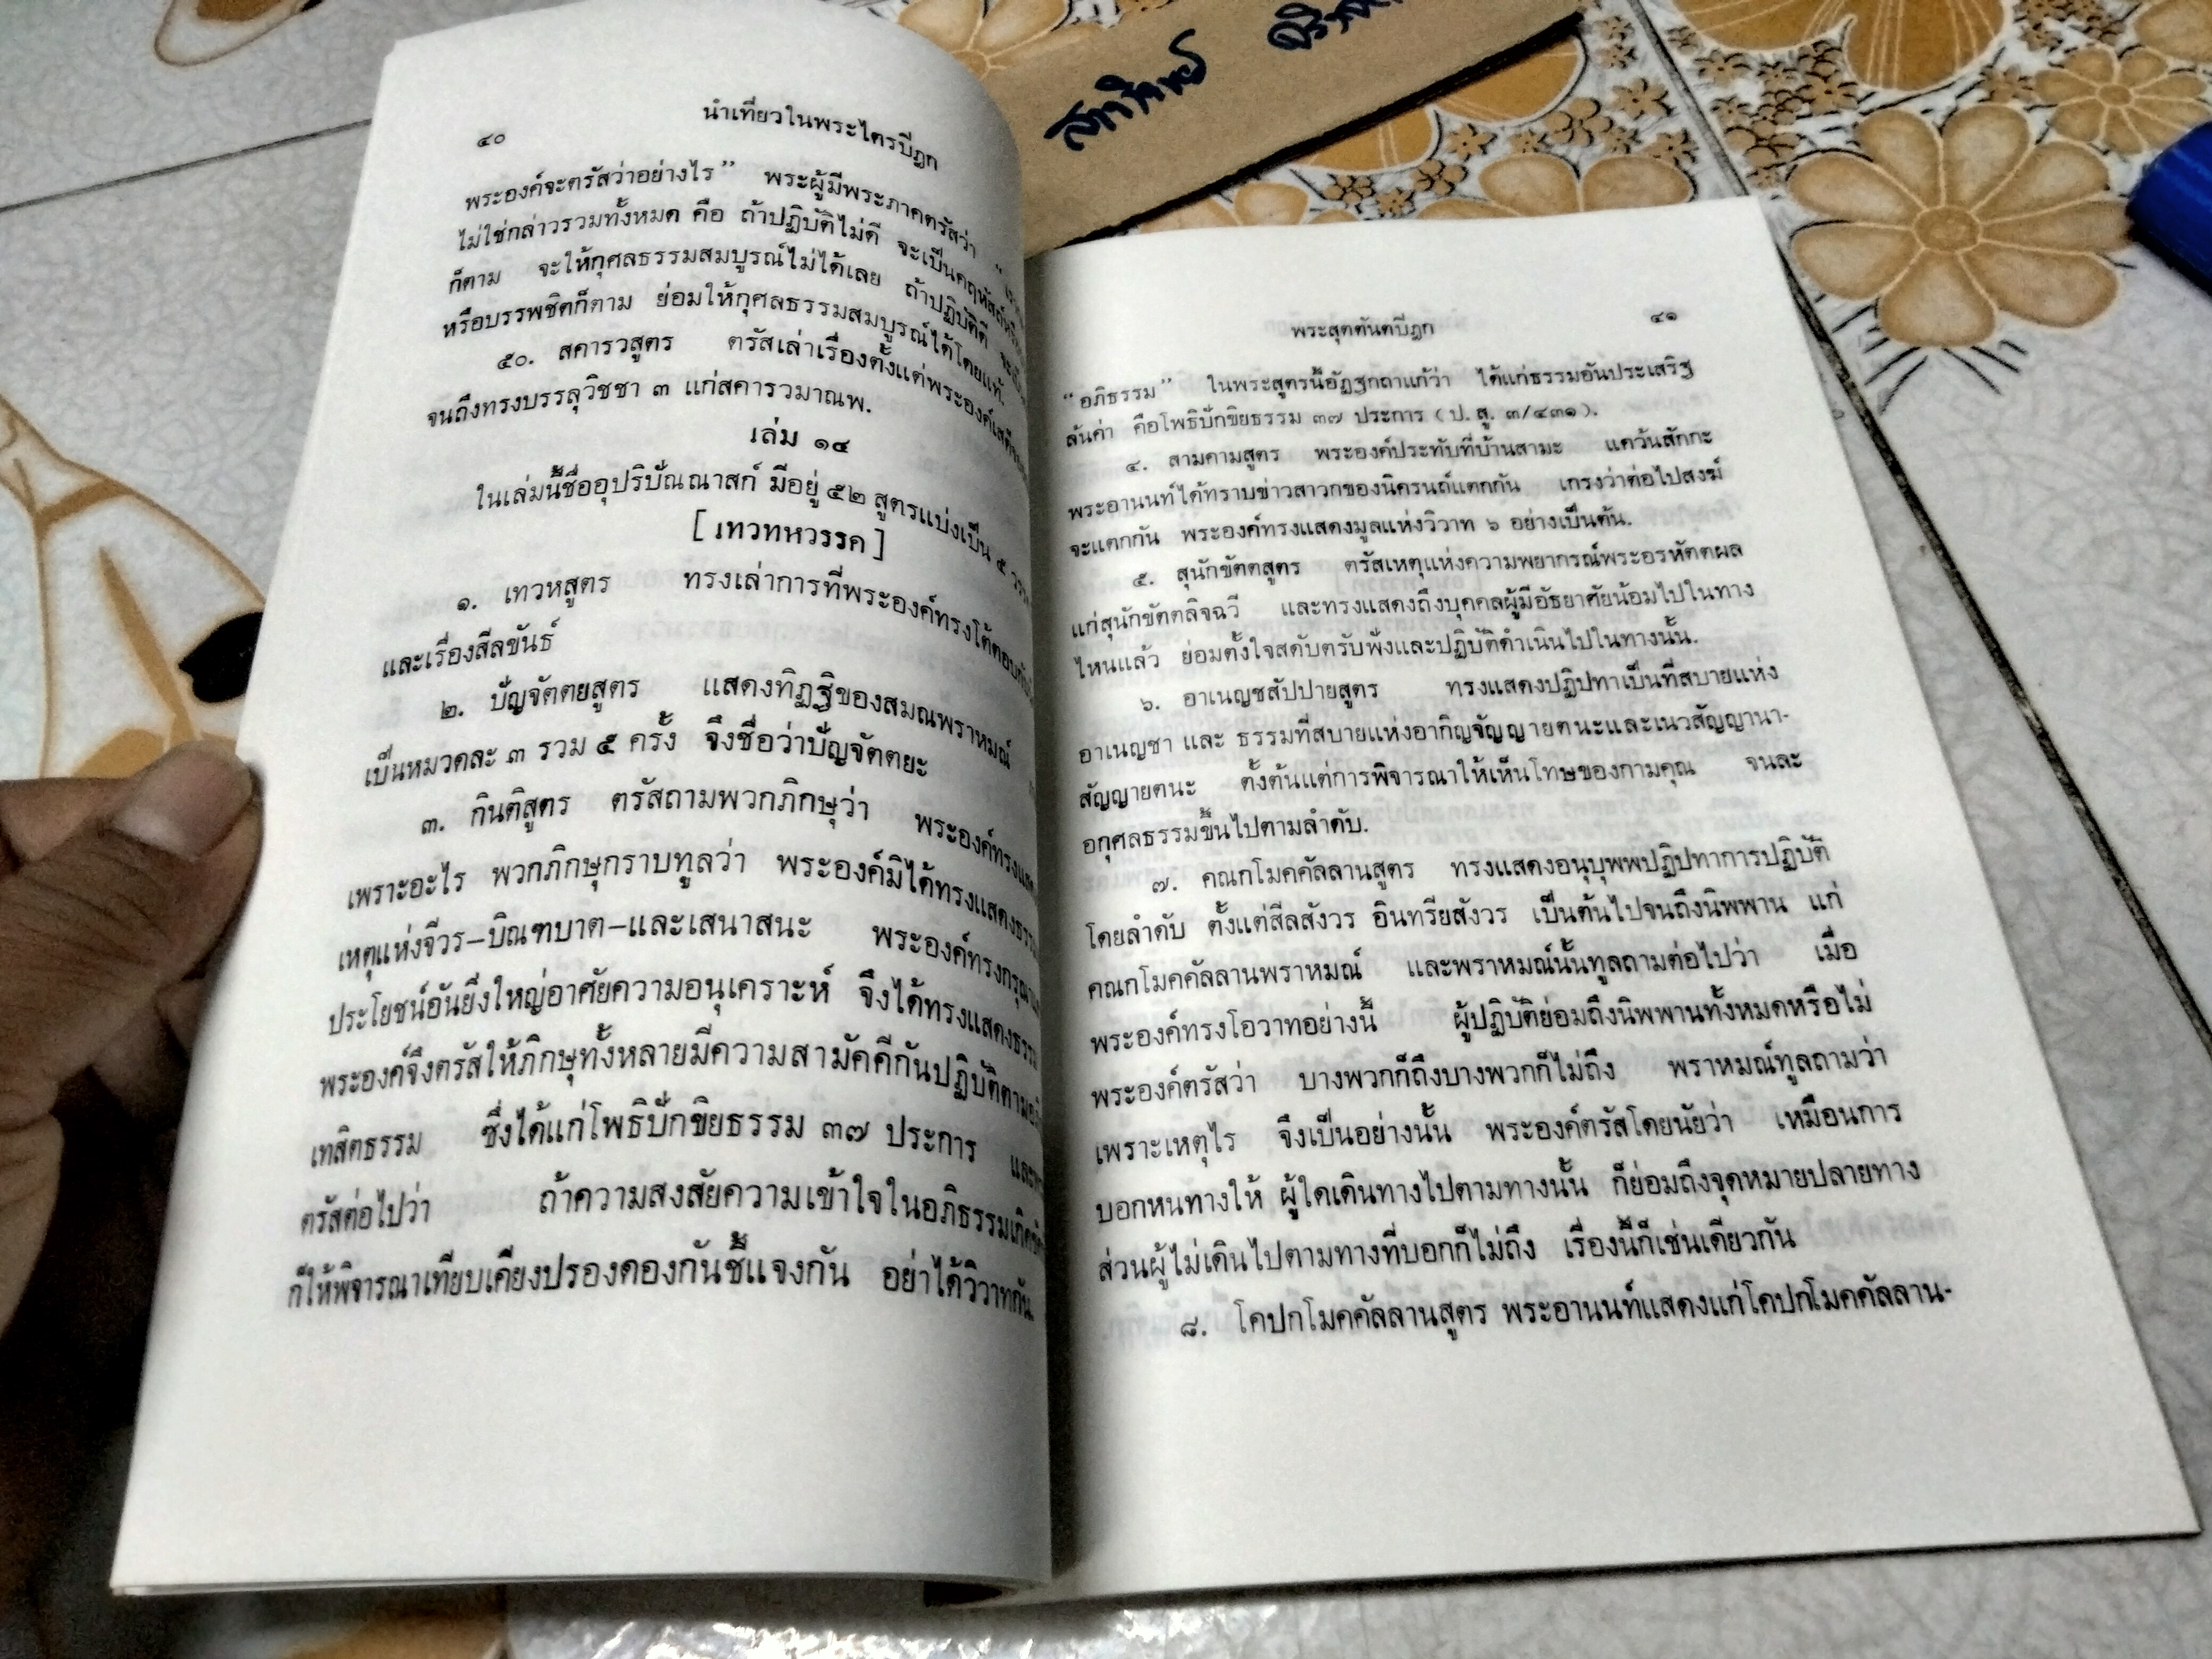 ๔๐
นำเที่ยวในพระไตรปิฎก
พระองค์จะตรัสว่าอย่างไร” พระผู้มีพระภาคตรัสว่า “
ไม่ใช่กล่าวรวมทั้งหมด คือ ถ้าปฏิบัติไม่ดี จะเป็นคฤหัสถ์
ก็ตาม จะให้กุศลธรรมสมบูรณ์ไม่ได้เลย ถ้าปฏิบัติดี
หรือบรรพชิตก็ตาม ย่อมให้กุศลธรรมสมบูรณ์ได้โดยแท้.
๕๐. สคารวสูตร ตรัสเล่าเรื่องตั้งแต่พระองค์
จนถึงทรงบรรลุวิชชา ๓ แก่สคารวมาณพ.
เล่ม ๑๔
ในเล่มนี้ชื่ออุปริปัณณาสก์ มีอยู่ ๕๒ สูตรแบ่งเป็น ๕
[ เทวทหวรรค ]
๑. เทวหสูตร ทรงเล่าการที่พระองค์ทรงโต้ตอบ
และเรื่องสีลขันธ์
๒. ปัญจัตตยสูตร แสดงทิฏฐิของสมณพราหมณ์
เป็นหมวดละ ๓ รวม ๕ ครั้ง จึงชื่อว่าปัญจัตตยะ
๓. กินติสูตร ตรัสถามพวกภิกษุว่า พระองค์ทรง
เพราะอะไร พวกภิกษุกราบทูลว่า พระองค์มิได้ทรงแสดงธรรม
เหตุแห่งจีวร–บิณฑบาต–และเสนาสนะ พระองค์ทรงกรุณา
ประโยชน์อันยิ่งใหญ่อาศัยความอนุเคราะห์ จึงได้ทรงแสดงธรรม
พระองค์จึงตรัสให้ภิกษุทั้งหลายมีความสามัคคีกันปฏิบัติตาม
เทสิตธรรม ซึ่งได้แก่โพธิปักขิยธรรม ๓๗ ประการ
ตรัสต่อไปว่า ถ้าความสงสัยความเข้าใจในอภิธรรม
ก็ให้พิจารณาเทียบเคียงปรองดองกันชี้แจงกัน อย่าได้วิวาทกัน.
พระสุตตันตปิฎก
๔๑
“อภิธรรม” ในพระสูตรนี้อัฏฐกถาแก้ว่า ได้แก่ธรรมอันประเสริฐ
ล้นค่า คือโพธิปักขิยธรรม ๓๗ ประการ ( ป. สู. ๓/๔๓๑ ).
๔. สามคามสูตร พระองค์ประทับที่บ้านสามะ แคว้นสักกะ
พระอานนท์ได้ทราบข่าวสาวกของนิครนถ์แตกกัน เกรงว่าต่อไปสงฆ์
จะแตกกัน พระองค์ทรงแสดงมูลแห่งวิวาท ๖ อย่างเป็นต้น.
๕. สุนักขัตตสูตร ตรัสเหตุแห่งความพยากรณ์พระอรหัตตผล
แก่สุนักขัตตลิจฉวี และทรงแสดงถึงบุคคลผู้มีอัธยาศัยน้อมไปในทาง
ไหนแล้ว ย่อมตั้งใจสดับตรับฟังและปฏิบัติดำเนินไปในทางนั้น.
๖. อาเนญชสัปปายสูตร ทรงแสดงปฏิปทาเป็นที่สบายแห่ง
อาเนญชา และ ธรรมที่สบายแห่งอากิญจัญญายตนะและเนวสัญญานา-
สัญญายตนะ ตั้งต้นแต่การพิจารณาให้เห็นโทษของกามคุณ จนละ
อกุศลธรรมขึ้นไปตามลำดับ.
๗. คณกโมคคัลลานสูตร ทรงแสดงอนุบุพพปฏิปทาการปฏิบัติ
โดยลำดับ ตั้งแต่สีลสังวร อินทรียสังวร เป็นต้นไปจนถึงนิพพาน แก่
คณกโมคคัลลานพราหมณ์ และพราหมณ์นั้นทูลถามต่อไปว่า เมื่อ
พระองค์ทรงโอวาทอย่างนี้ ผู้ปฏิบัติย่อมถึงนิพพานทั้งหมดหรือไม่
พระองค์ตรัสว่า บางพวกก็ถึงบางพวกก็ไม่ถึง พราหมณ์ทูลถามว่า
เพราะเหตุไร จึงเป็นอย่างนั้น พระองค์ตรัสโดยนัยว่า เหมือนการ
บอกหนทางให้ ผู้ใดเดินทางไปตามทางนั้น ก็ย่อมถึงจุดหมายปลายทาง
ส่วนผู้ไม่เดินไปตามทางที่บอกก็ไม่ถึง เรื่องนี้ก็เช่นเดียวกัน
๘. โคปกโมคคัลลานสูตร พระอานนท์แสดงแก่โคปกโมคคัลลาน-